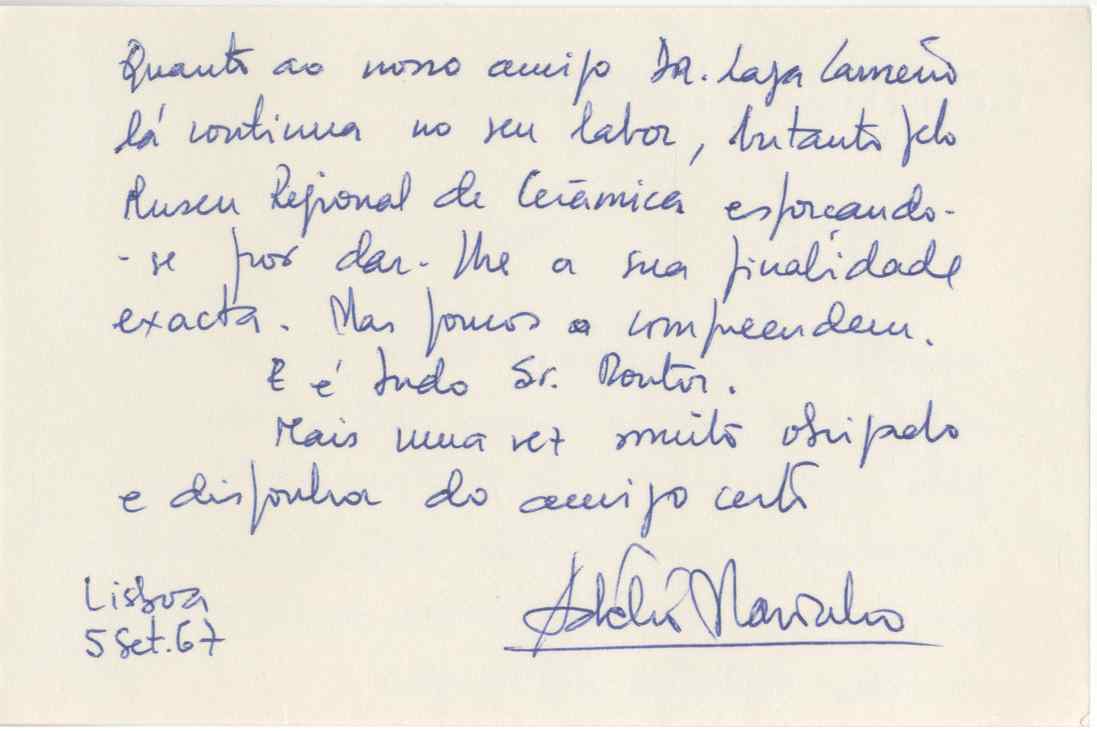 Quanto ao nosso amigo Dr. Lapa Carneiro
lá continua no seu labor, lutando pelo
Museu Regional de Cerâmica esforçando-
-se por dar-lhe a sua finalidade
exacta. Mas poucos o compreendem.
E é tudo Sr. Doutor.
Mais uma vez muito obrigado
e disponha do amigo certo
Adélio Marinho
Lisboa
5 Set. 67